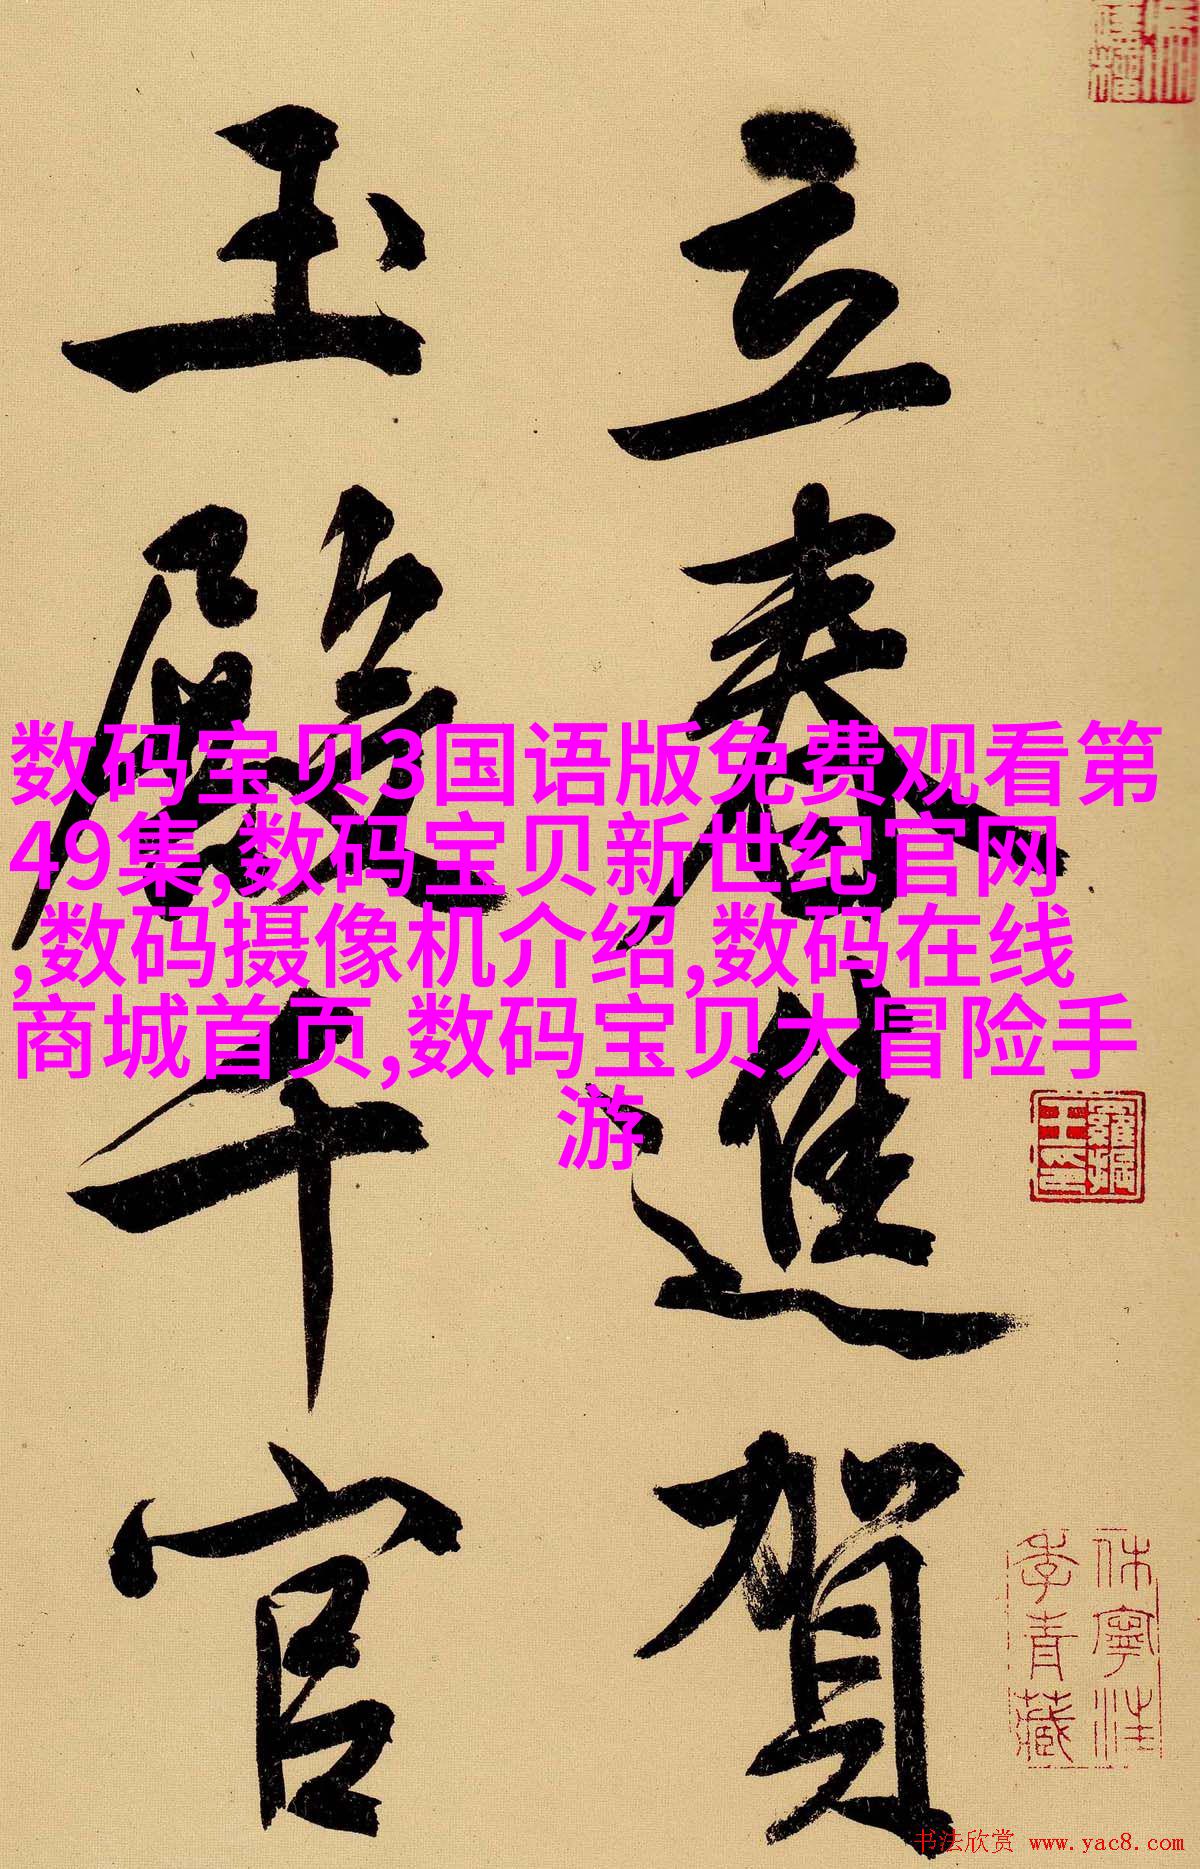 立春進賀
玉殿千官
数码宝贝3国语版免费观看第
49集,数码宝贝新世纪官网
,数码摄像机介绍,数码在线
商城首页,数码宝贝大冒险手
游
休寧汪
季青藏
书法欣赏 www.yac8.com